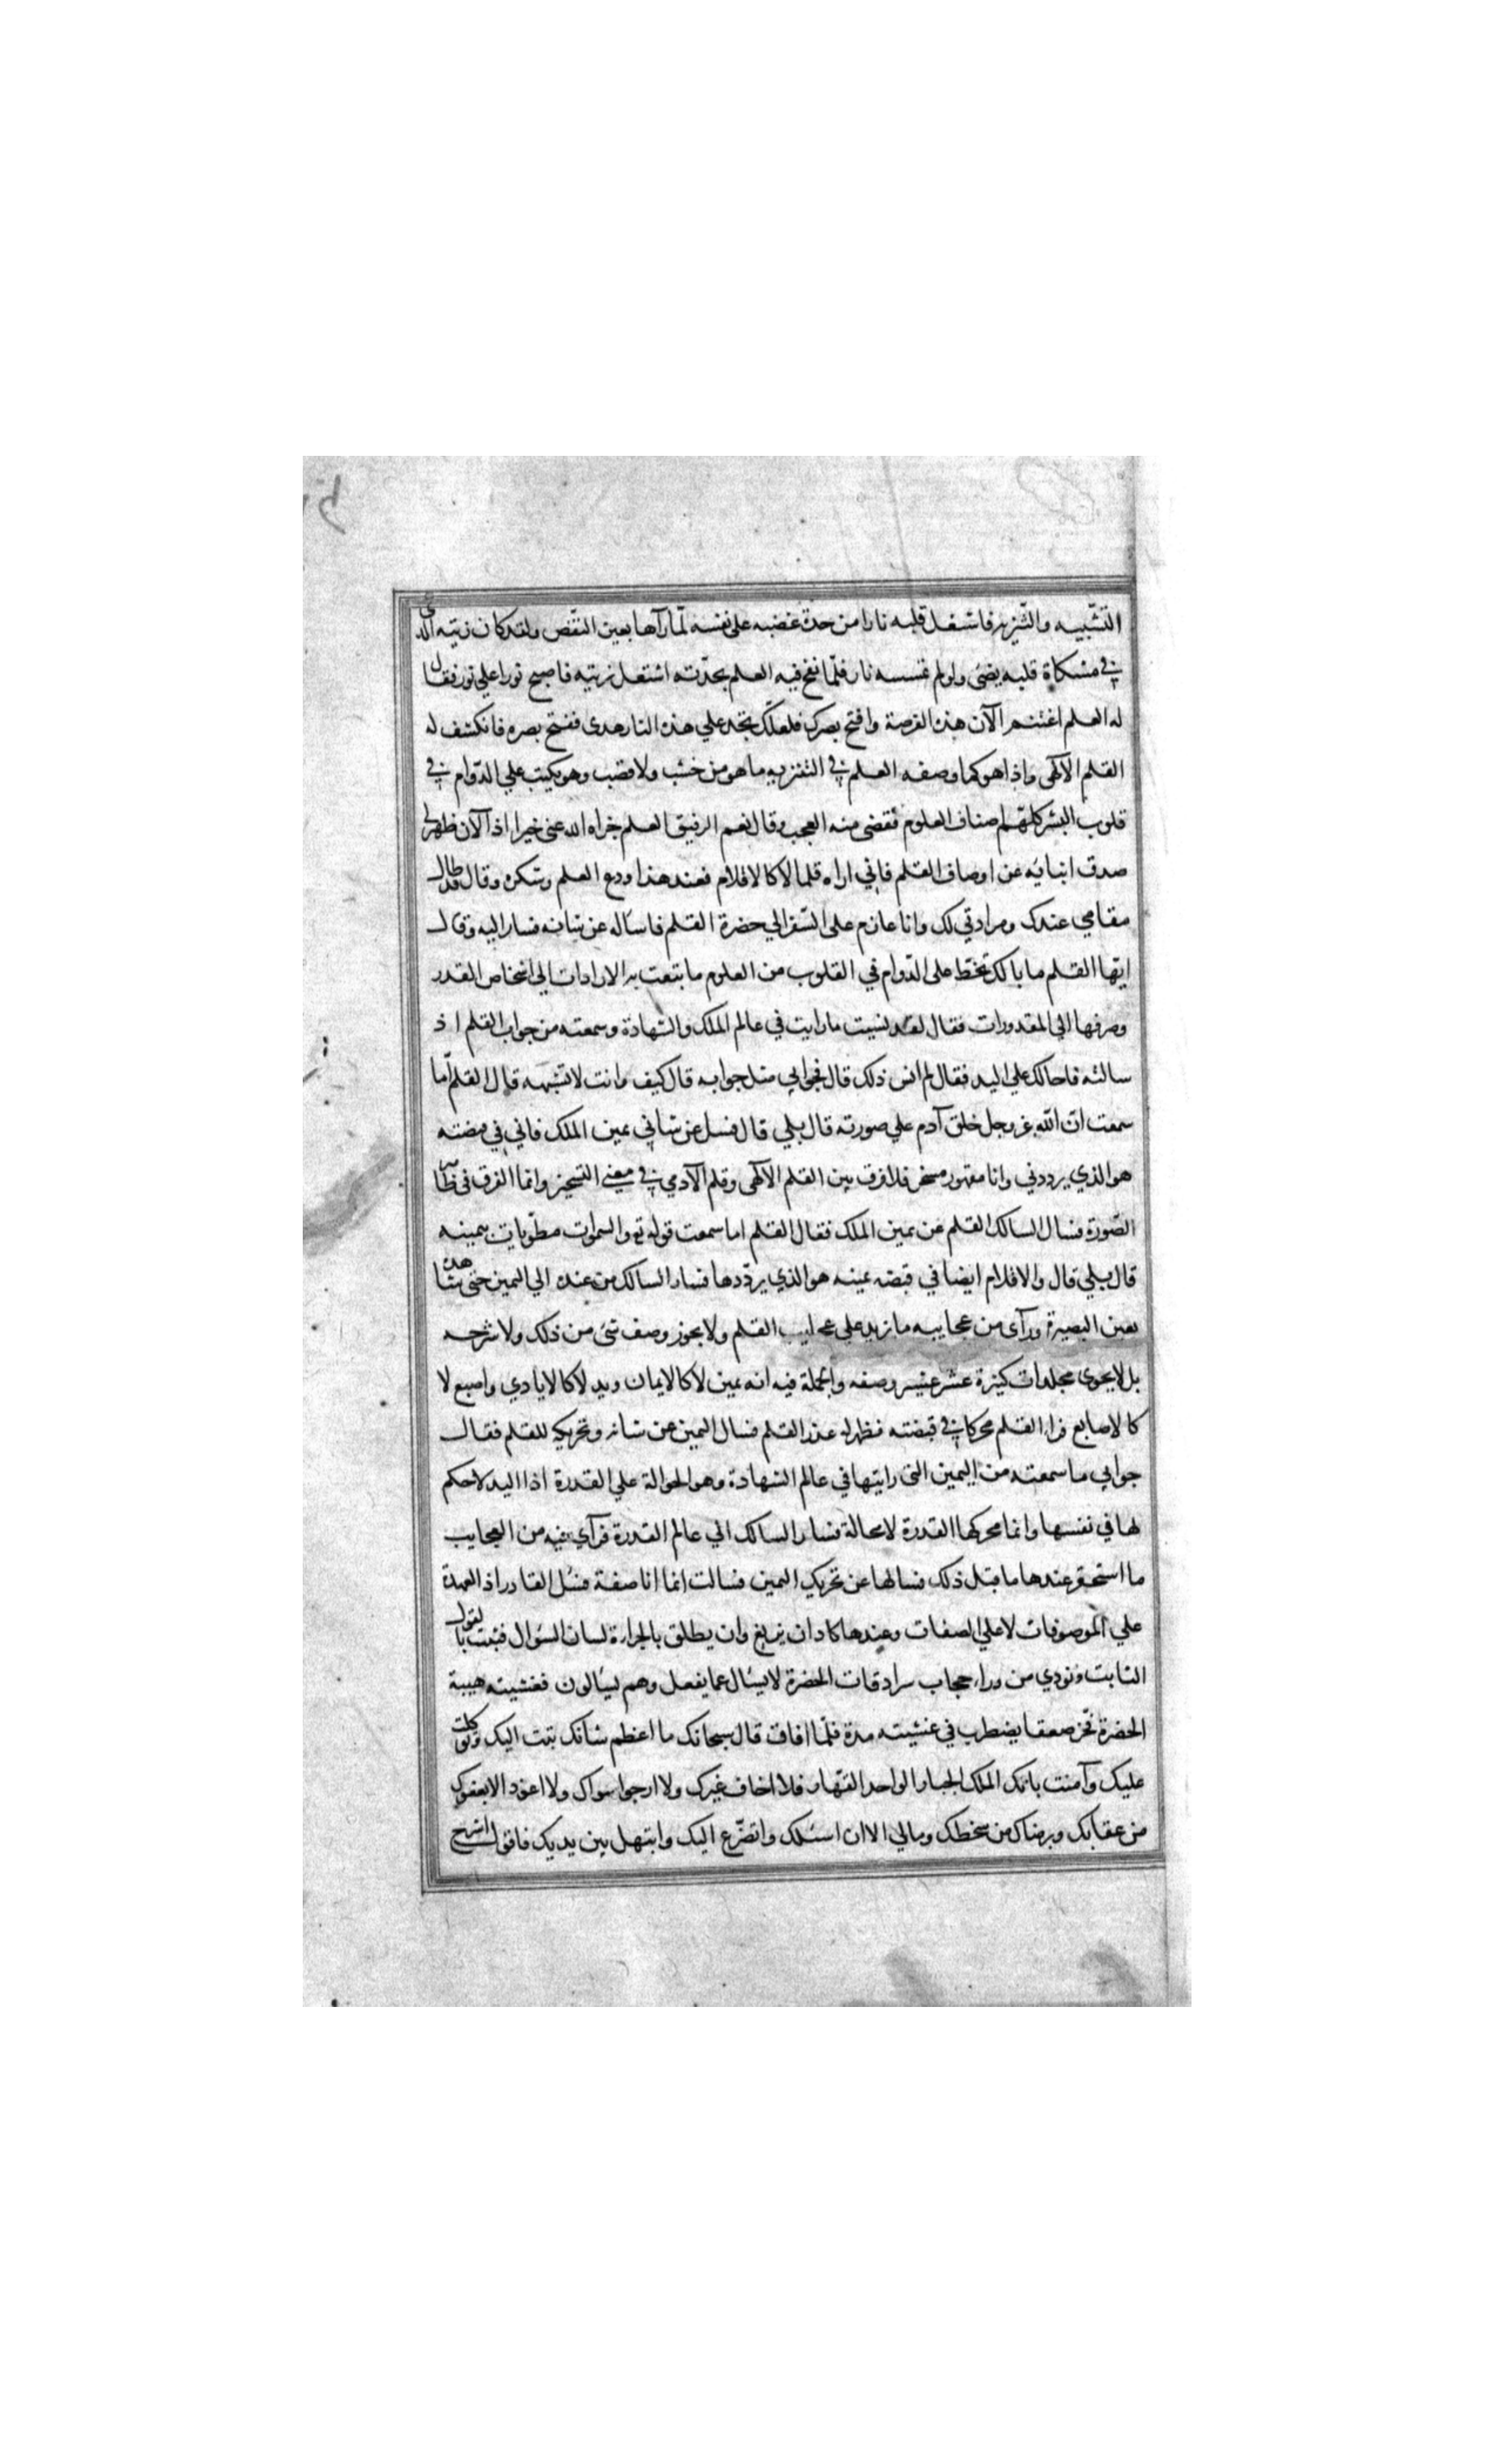 التشبيه والتنزيه فاشتعل قلبه نارا من حدة غضبه على نفسه لمّا رآها بعين النقص ولقد كان زيته الذي
في مشكاة قلبه يضئ ولو لم تمسسه نار فلمّا نفخ فيه العلم بحدّته اشتعل زيته فاصبح نورا علي نور فقال
له العلم اغتنم الآن هذه الفرصة وافتح بصرك فلعلّك تجد علي هذه النار هدى ففتح بصره فانكشف له
القلم الآلهى واذا هو كما وصفه العلم في التنزيه ما هو من خشب ولا قصب وهو يكتب علي الدّوام في
قلوب البشر كلهم اصناف العلوم فقضى منه العجب وقال نعم الرفيق العلم جزاه الله عنى خيرا اذ الآن ظهر لي
صدق انبائه عن اوصاف القلم فاني اراه قلما لا كالاقلام فعند هذا ودع العلم وشكره وقال قد طال
مقامي عندك ومرادتي لك وانا عازم على السّفر الي حضرة القلم فاساله عن شانه فسار اليه وقال
ايّها القلم ما بالك تخطّ على الدّوام في القلوب من العلوم ما تبتعث به الارادات الي اشخاص القدر
وصرفها الي المقدورات فقال لقد نسيت ما رايت في عالم الملك والشهادة وسمعته من جواب القلم اذ
سالته فاحالك علي اليد فقال لم انس ذلك قال فجوابي مثل جوابه قال كيف وانت لا تشبهه قال القلم أما
سمعت انّ الله عز وجل خلق آدم علي صورته قال بلي قال فسل عن شاني يمين الملك فاني في قبضته
هو الذي يرددني وانا مقهور مسخر فلا فرق بين القلم الآلهى وقلم الآدمي في معني التسخير وانما الفرق في ظاهر
الصّورة فسال السالك القلم عن يمين الملك فقال القلم اما سمعت قوله تع والسموات مطويات بيمينه
قال بلي قال والاقلام ايضا في قبضه يمينه هو الذي يردّدها فسار السالك من عنده الي اليمين حتى شاهده
بعين البصيرة ورآى من عجايبه ما يزيد علي عجايب القلم ولا يجوز وصف شئ من ذلك ولا شرحه
بل لا يحوى مجلدات كثيرة عشر عشير وصفه والجملة فيه انه يمين لا كالايمان ويد لا كالايادي واصبع لا
كالاصابع فراى القلم محركا في قبضته فظهر له عذر القلم فسال اليمين عن شانه وتحريكه للقلم فقال
جوابي ما سمعته من اليمين التى رايتها في عالم الشهادة وهو الحوالة علي القدرة اذ اليد لا حكم
لها في نفسها وانما محركها القدرة لا محالة فسار السالك الي عالم القدرة فرآي فيه من العجايب
ما استحقر عندها ما قبل ذلك فسالها عن تحريك اليمين فسالت انما انا صفة فسئل القادر اذ العهدة
علي الموصوفات لا علي الصفات وعندها كاد ان يزيغ وان يطلق بالجرارة لسان السؤال فثبت بالقول
الثابت ونودي من وراء حجاب سرادقات الحضرة لا يسئال عما يفعل وهم يسئالون فغشيته هيبة
الحضرة فخر صعقا يضطرب في غشيته مدة فلّما افاق قال سبحانك ما اعظم شانك تبت اليك وتوكلت
عليك وآمنت بانك الملك الجبار الواحد القهار فلا اخاف غيرك ولا ارجوا سواك ولا اعوذ الا بعفوك
من عقابك وبرضاك من سخطك ومالي الا ان اسئلك واتضرّع اليك وابتهل بين يديك فاقول اشرح